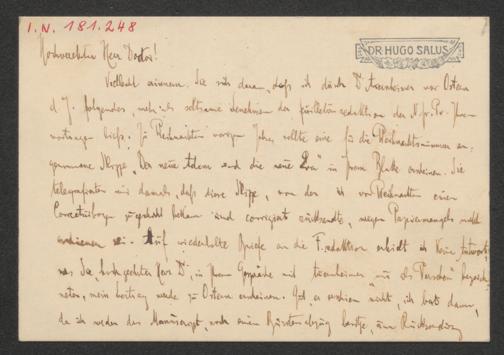 I.N. 181.248
DR HUGO SALUS
Hochverehrter Herr Doctor!
Vielleicht erinnern Sie sich daran, daß ich durch Dr vor Ostern
d. J. folgendes, mich seltsame Benehmen der Feuilletonredaktion der N. fr. Pr. Ihnen
vortragen ließ: Zu Weihnachten vorigen Jahres sollte eine für die Weihnachtsnummer an-
genommene Skizze „Der neue Adam und die neue Eva" in Ihrem Blatte erscheinen. Sie
telegrafierten mir damals, daß diese Skizze, von der ich vor Weihnachten einen
zugeschickt bekam und corrigiert rücksandte, wegen Papiermangels nicht
erschienen sei. Auf wiederholte Briefe an die F.redaktion erhielt ich keine Antwort,
Sie, hochgeehrter Herr Dr, in Ihrem Gespräche mit „nur als" bezeich-
neten, mein Beitrag werde zu Ostern erscheinen. Gut, er erschien nicht, ich bat dann,
da ich weder das Manuscript, noch einen Bürstenabzug besitze, um Rücksendung